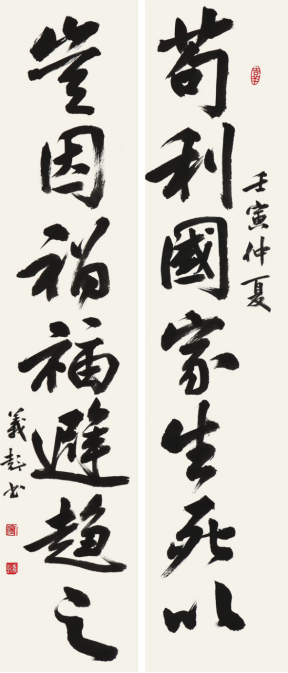 苟利國家生死以
壬寅仲夏
豈因禍福避趨之
義彭书